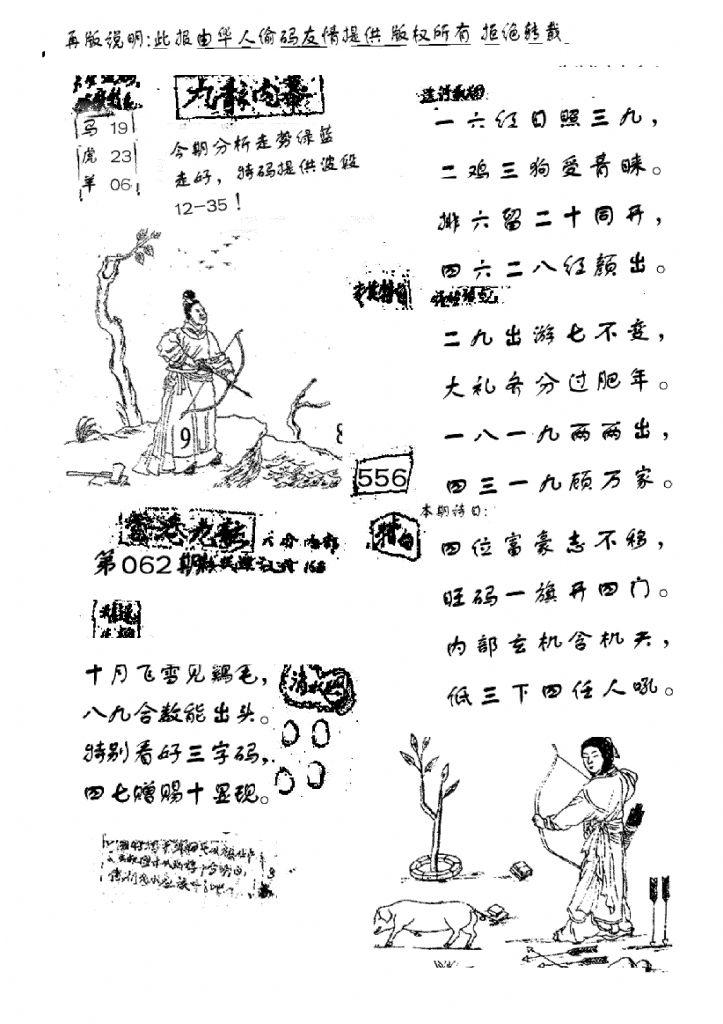 再版说明:此报由华人偷码友情提供 版权所有 拒绝转载
九龍内幕
马 19
虎 23
羊 06
今期分析走势绿蓝
走好，特码提供波段
12-35！
一六红日照三九，
二鸡三狗受青睐。
排六留二十同开，
四六二八红颜出。
二九出游七不变，
大礼齐分过肥年。
一八一九两两出，
四三一九顾万家。
9
8
556
本期诗曰：
特白
四位富豪志不移，
旺码一旗开四门。
内部玄机含机关，
低三下四任人吼。
第062期
十月飞雪见鵝毛，
八九合数能出头。
特别看好三字码，
四七赠赐十显现。